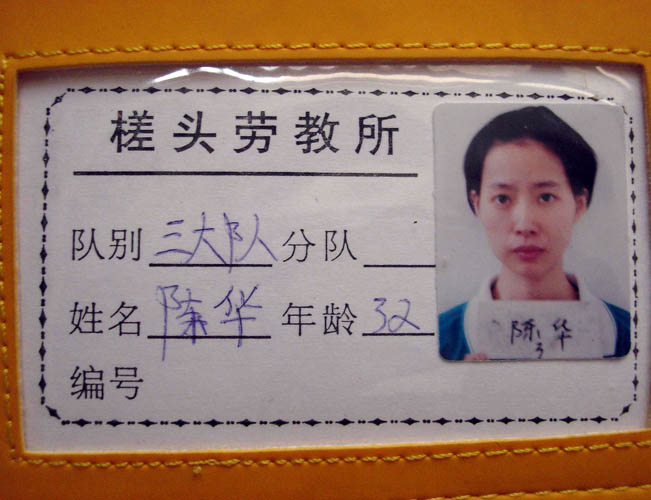 槎头劳教所
队别 三大队 分队
姓名 陈华 年龄 32
编号
陈华
3